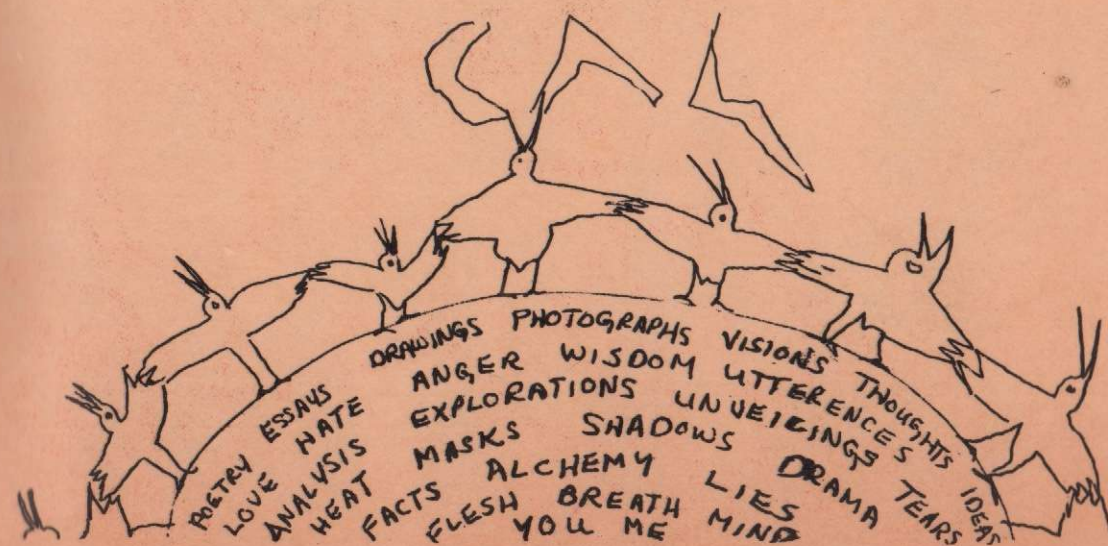 POETRY ESSAYS DRAWINGS PHOTOGRAPHS VISIONS THOUGHTS IDEAS
LOVE HATE ANGER WISDOM UTTERENCES TEARS
ANALYSIS EXPLORATIONS UNVEILINGS
HEAT MASKS SHADOWS DRAMA
FACTS ALCHEMY LIES
FLESH BREATH MIND
YOU ME